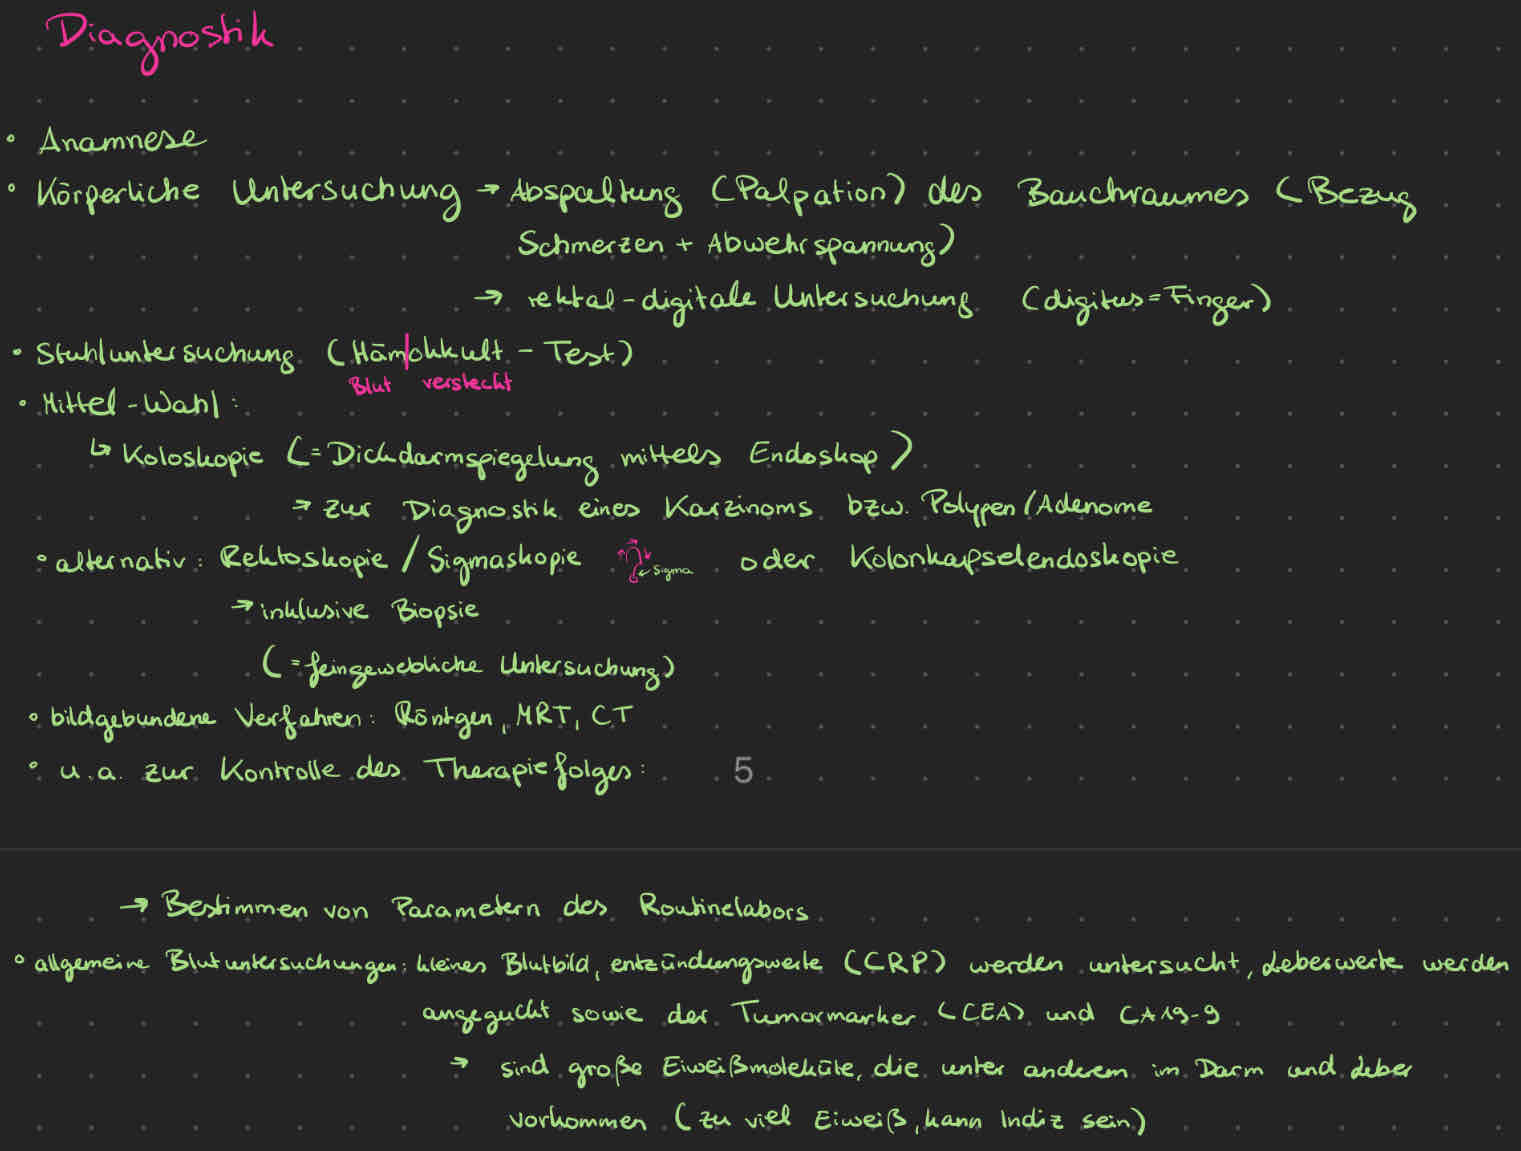 Diagnostik
• Anamnese
• Körperliche Untersuchung → Abspaltung (Palpation) des Bauchraumes (Bezug
Schmerzen + Abwehrspannung)
→ rektal-digitale Untersuchung (digitus = Finger)
• Stuhluntersuchung (Häm|okkult - Test)
Blut versteckt
• Mittel-Wahl:
↳ Koloskopie (= Dickdarmspiegelung mittels Endoskop)
→ zur Diagnostik eines Karzinoms bzw. Polypen/Adenome
• alternativ: Rektoskopie / Sigmaskopie ← Sigma oder Kolonkapselendoskopie
→ inklusive Biopsie
(= feingewebliche Untersuchung)
• bildgebundene Verfahren: Röntgen, MRT, CT
• u.a. zur Kontrolle des Therapiefolges: 5
→ Bestimmen von Parametern des Routinelabors
• allgemeine Blutuntersuchungen: kleines Blutbild, entzündungswerte (CRP) werden untersucht, Leberwerte werden
angeguckt sowie der Tumormarker (CEA) und CA19-9
→ sind große Eiweißmoleküle, die unter anderem im Darm und Leber
vorkommen (zu viel Eiweiß, kann Indiz sein)